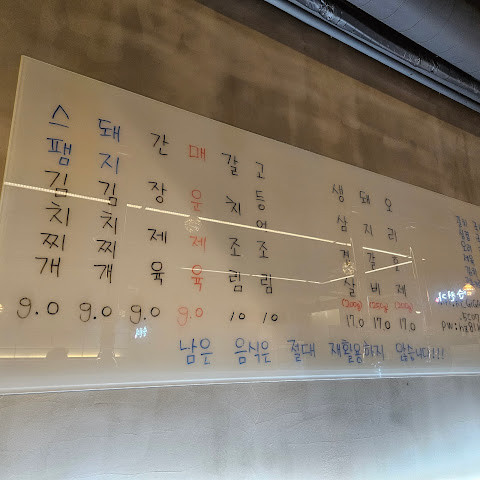 스팸김치찌개 9.0
돼지김치찌개 9.0
간장제육 9.0
매운제육 9.0
갈치조림 10
고등어조림 10
생삼겹살 (200g) 17.0
돼지갈비 (200g) 17.0
오리훈제 (200g) 17.0
남은 음식은 절대 재활용하지 않습니다!!!